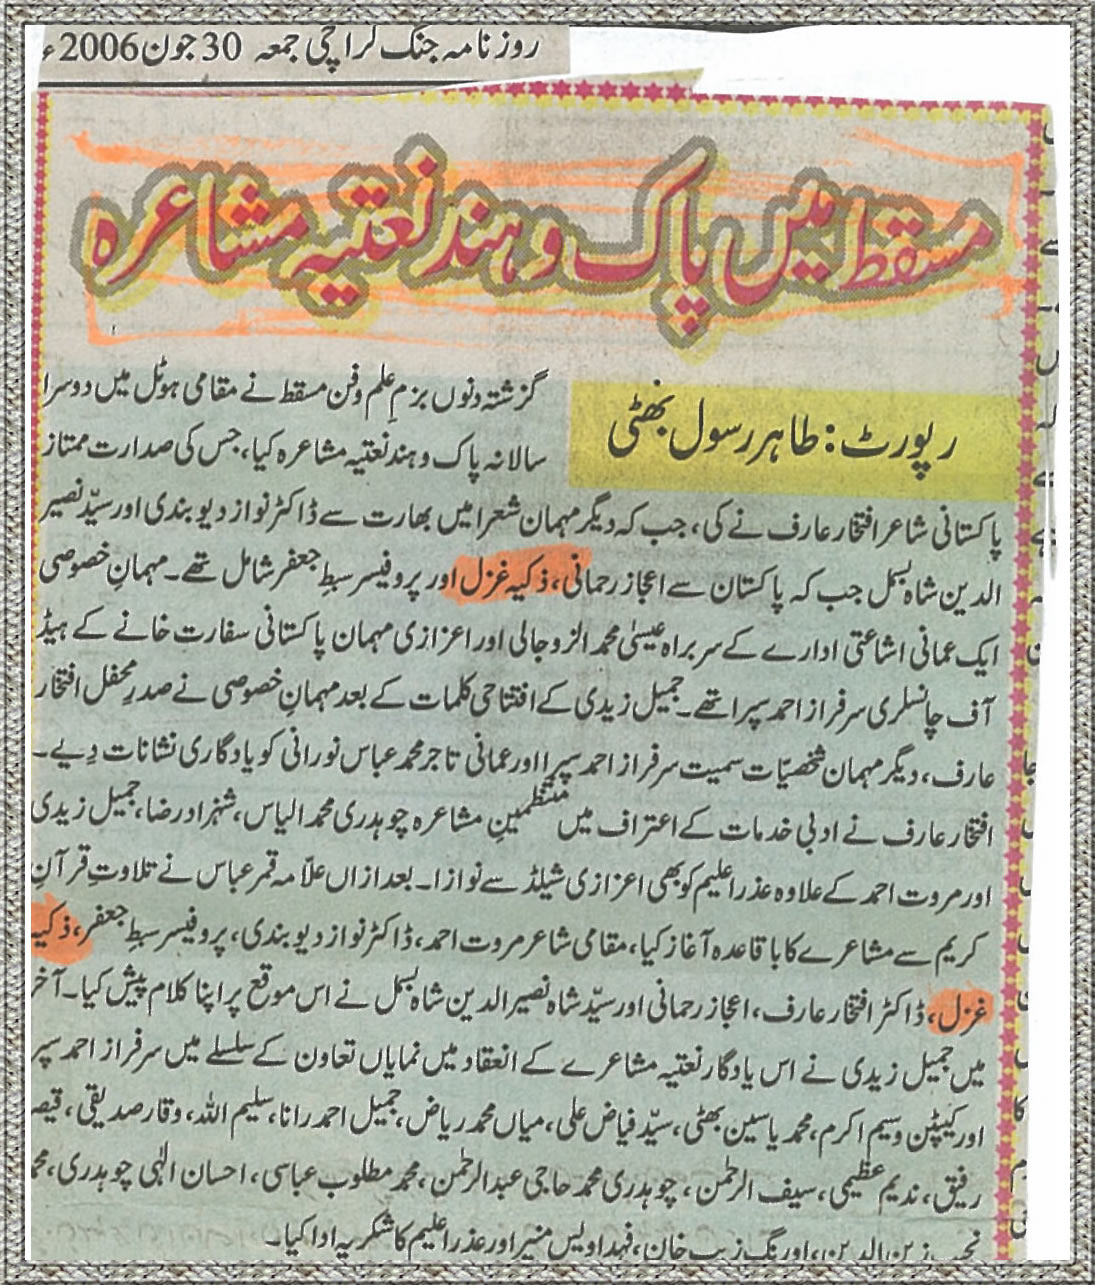 روزنامہ جنگ کراچی جمعہ 30 جون 2006ء
مسقط میں پاک و ہند نعتیہ مشاعرہ
رپورٹ: طاہر رسول بھٹی
گزشتہ دنوں بزمِ علم و فن مسقط نے مقامی ہوٹل میں دوسرا
سالانہ پاک و ہند نعتیہ مشاعرہ کیا، جس کی صدارت ممتاز
پاکستانی شاعر افتخار عارف نے کی، جب کہ دیگر مہمان شعرا میں بھارت سے ڈاکٹر نواز دیوبندی اور سیّد نصیر
الدین شاہ بسمل جب کہ پاکستان سے اعجاز رحمانی، ذکیہ غزل اور پروفیسر سبطِ جعفر شامل تھے۔ مہمانِ خصوصی
ایک عمانی اشاعتی ادارے کے سربراہ عیسیٰ محمد الزوجالی اور اعزازی مہمان پاکستانی سفارت خانے کے ہیڈ
آف چانسلری سرفراز احمد سپرا تھے۔ جمیل زیدی کے افتتاحی کلمات کے بعد مہمانِ خصوصی نے صدرِ محفل افتخار
عارف، دیگر مہمان شخصیّات سمیت سرفراز احمد سپرا اور عمانی تاجر محمد عباس نورانی کو یادگاری نشانات دِیے۔
افتخار عارف نے ادبی خدمات کے اعتراف میں منتظمینِ مشاعرہ چوہدری محمد الیاس، شہزاد رضا، جمیل زیدی
اور مروت احمد کے علاوہ عذرا علیم کو بھی اعزازی شیلڈ سے نوازا۔ بعد ازاں علاّمہ قمر عباس نے تلاوتِ قرآنِ
کریم سے مشاعرے کا باقاعدہ آغاز کیا، مقامی شاعر مروت احمد، ڈاکٹر نواز دیوبندی، پروفیسر سبطِ جعفر، ذکیہ
غزل، ڈاکٹر افتخار عارف، اعجاز رحمانی اور سیّد شاہ نصیر الدین شاہ بسمل نے اس موقع پر اپنا کلام پیش کیا۔ آخر
میں جمیل زیدی نے اس یادگار نعتیہ مشاعرے کے انعقاد میں نمایاں تعاون کے سلسلے میں سرفراز احمد سپر
اور کیپٹن وسیم اکرم، محمد یاسین بھٹی، سیّد فیاض علی، میاں محمد ریاض، جمیل احمد رانا، سلیم اللہ، وقار صدیقی، قیصر
رفیق، ندیم عظیمی، سیف الرحمٰن، چوہدری محمد حاجی عبدالرحمٰن، محمد مطلوب عباسی، احسان الٰہی چوہدری، محمد
نجیب زین الدین، اورنگ زیب خان، فہد اویس منیر اور عذرا علیم کا شکریہ ادا کیا۔